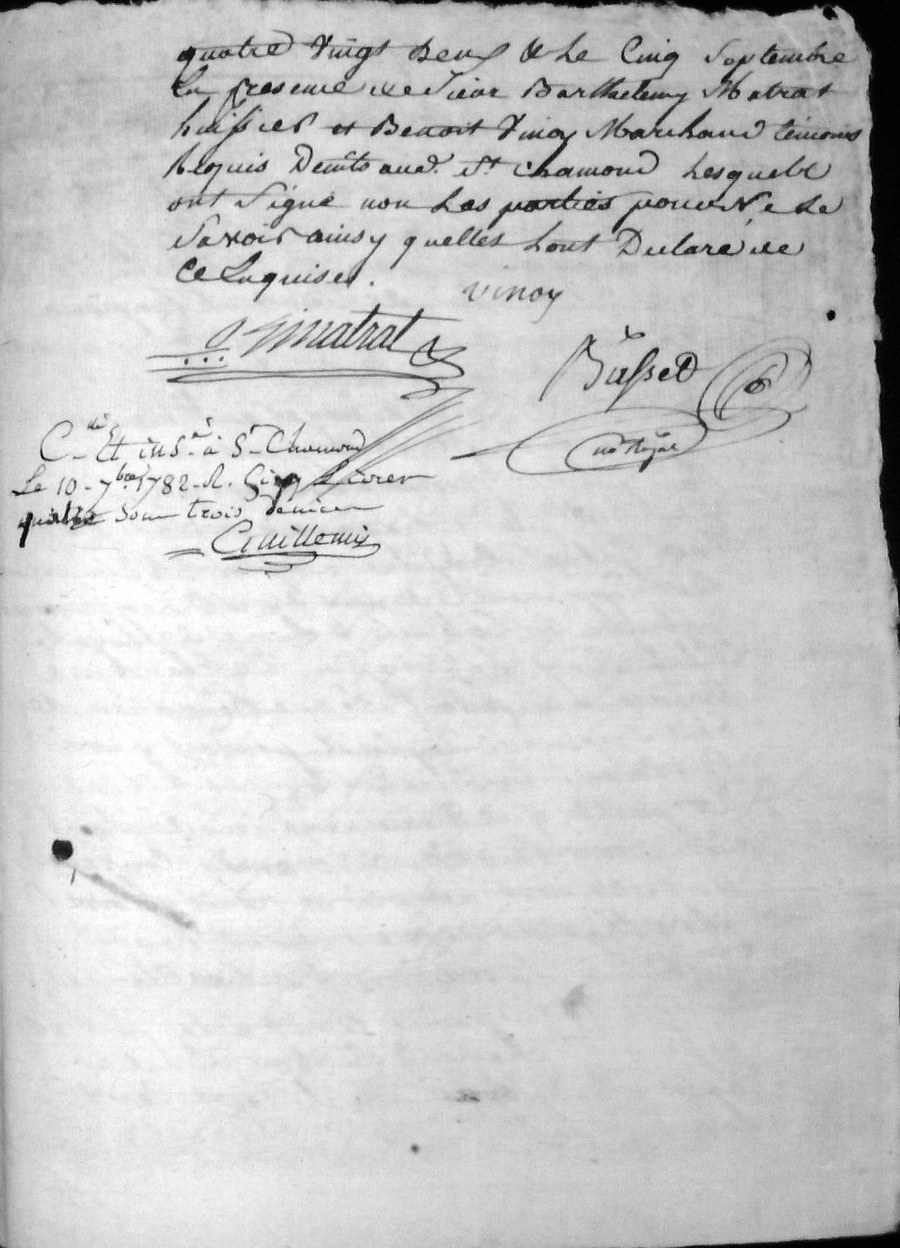 quatre vingt Deux & Le Cinq Septembre
En presence de Sieur Barthelemy Matrat
huissier et Benoit Vinoy Marchand témoins
Requis Demts aud. St. chamond Lesquels
ont Signé non Les parties pour Ne Le
Savoir ainsy quelles hont Declaré de
Ce Enquises.
vinoy
Matrat
Basset
no Royal
C-lé Et ins-é à St Chamond
Le 10 - 7bre 1782 - R. Cinq Livres
quatre Sous trois deniers
Guillemin